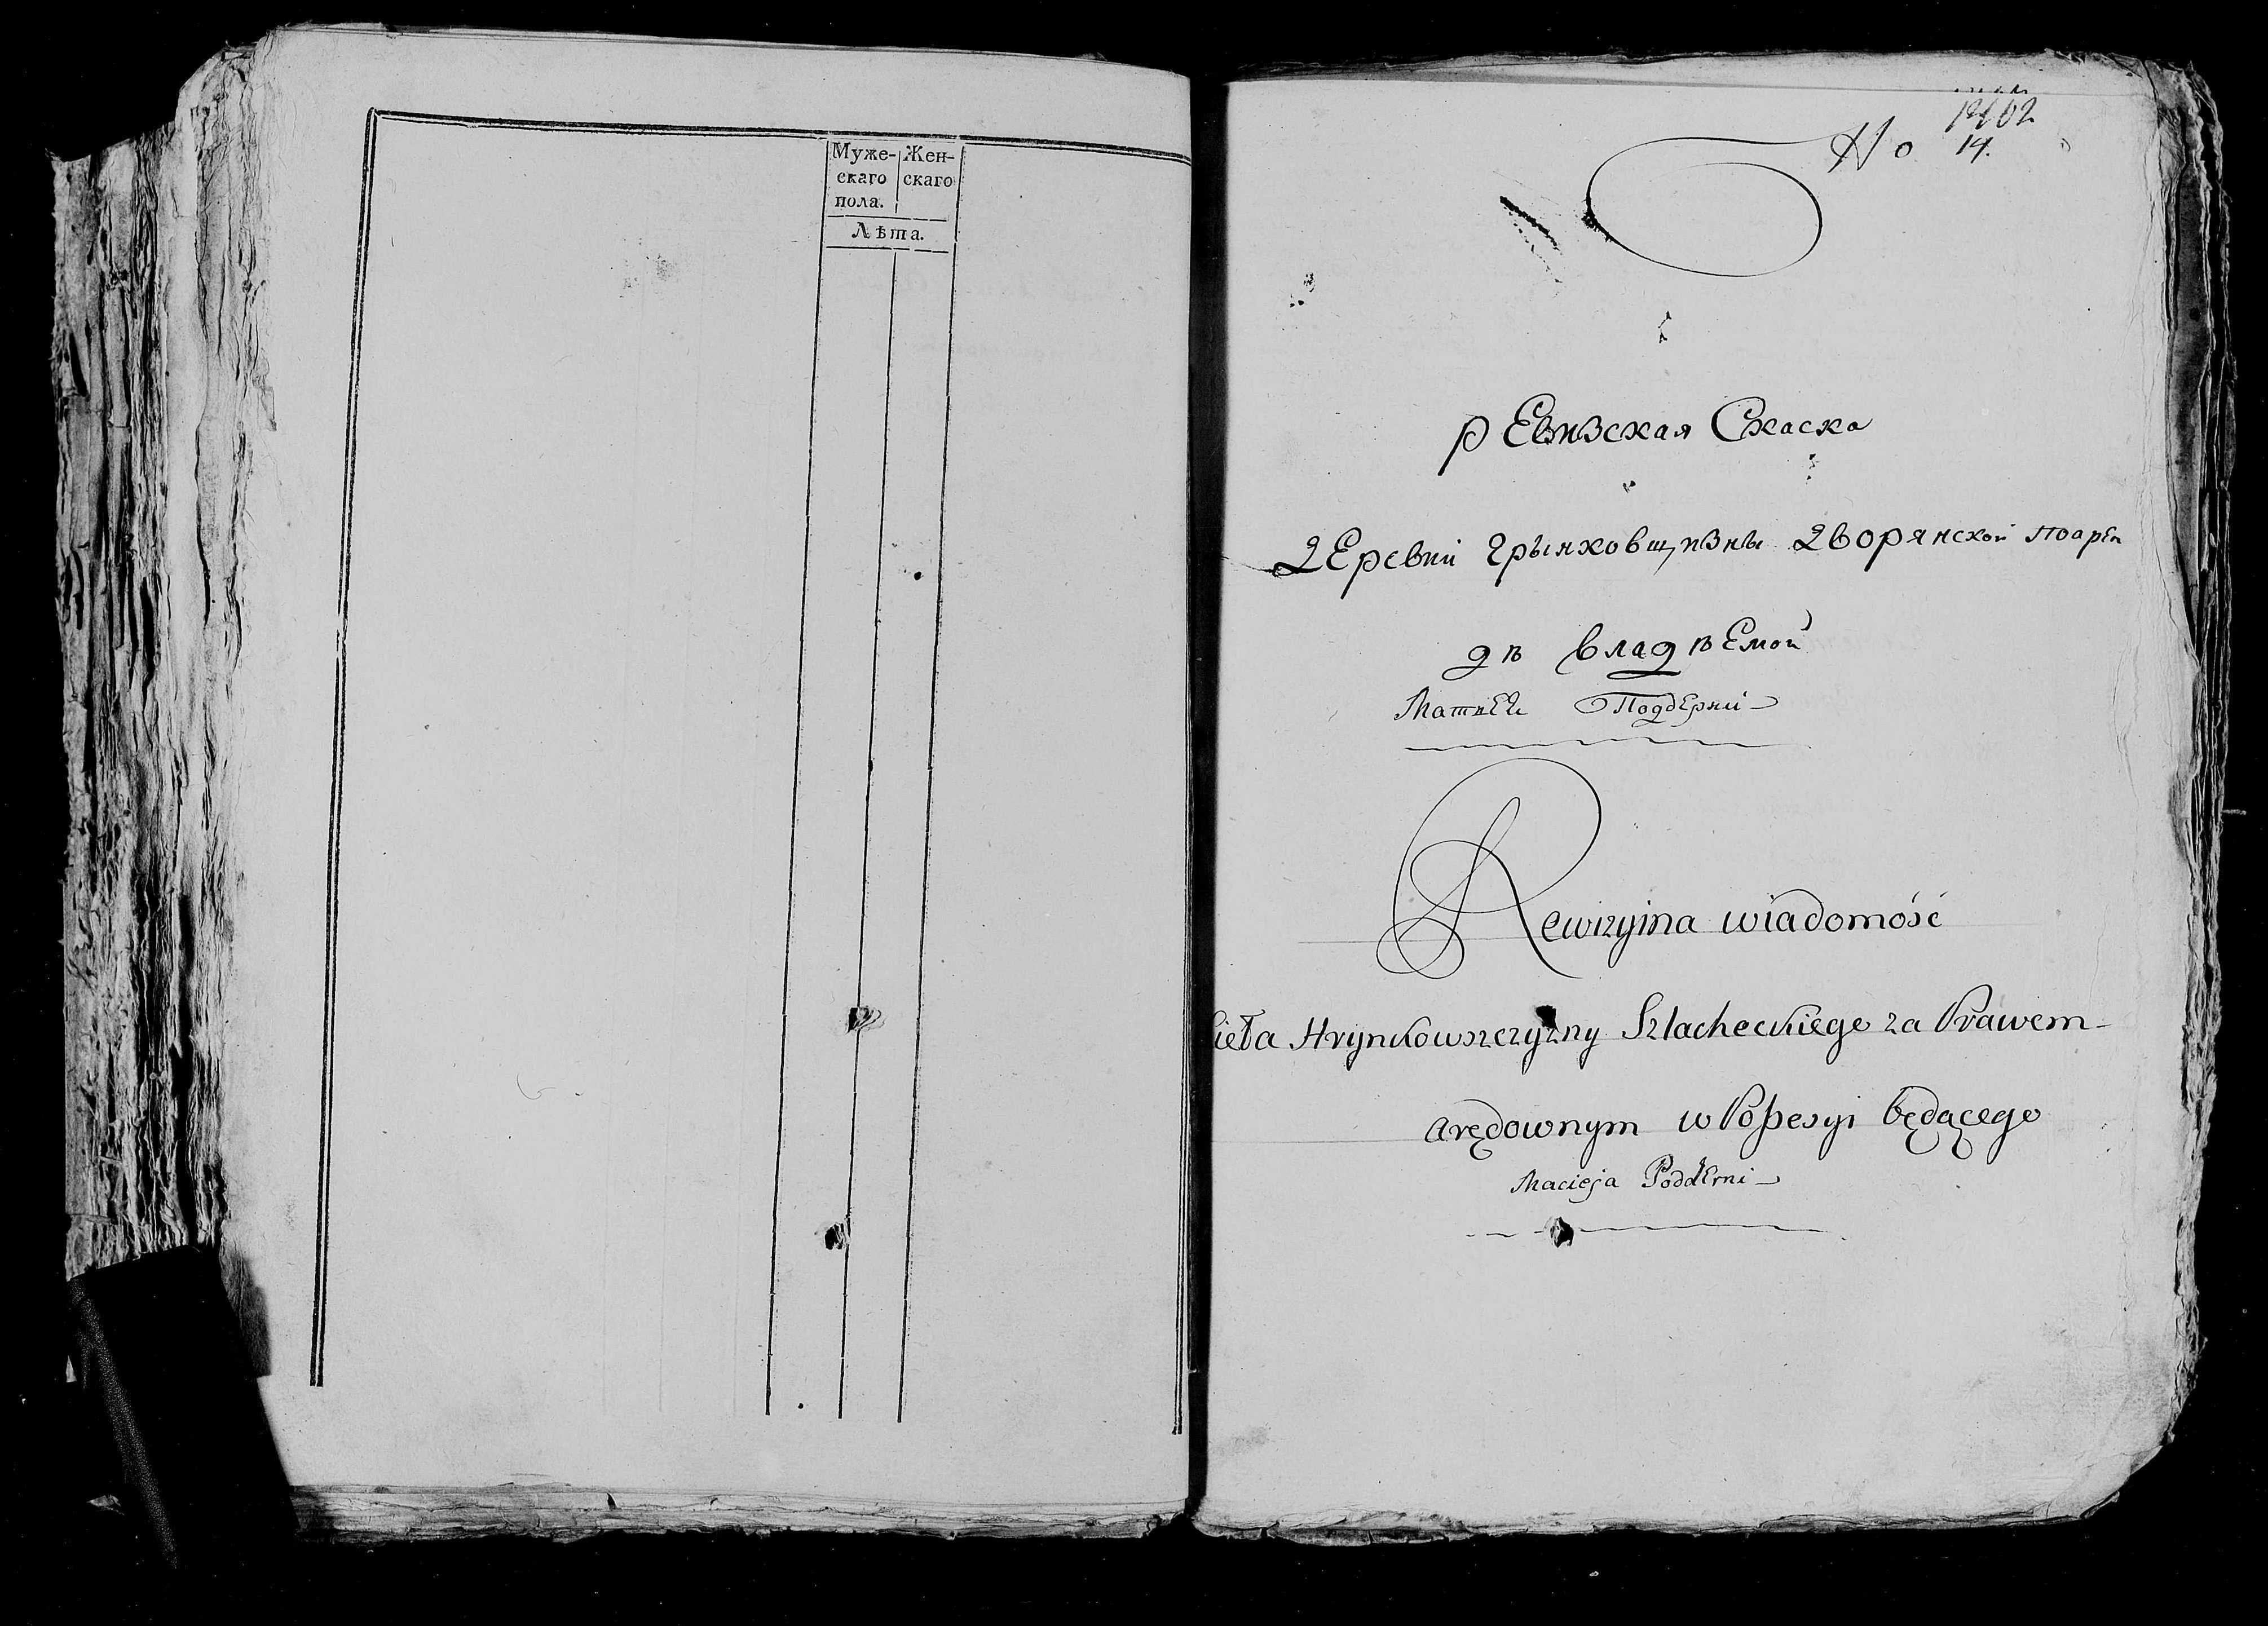 Муже- Жен-
скаго скаго
пола.
Лѣта.
No 14.
рЕвизская Скаска
дЕревни грынковщизны дворянской поарен
дѣ владѣЕмой
МатвЕи ПоддЕрни
Rewizyina wiadomość
Sieła Hrynkowszczyzny Szlacheckiego za Prawem
arędownym w Possesyi będącego
Macieja PoddErni